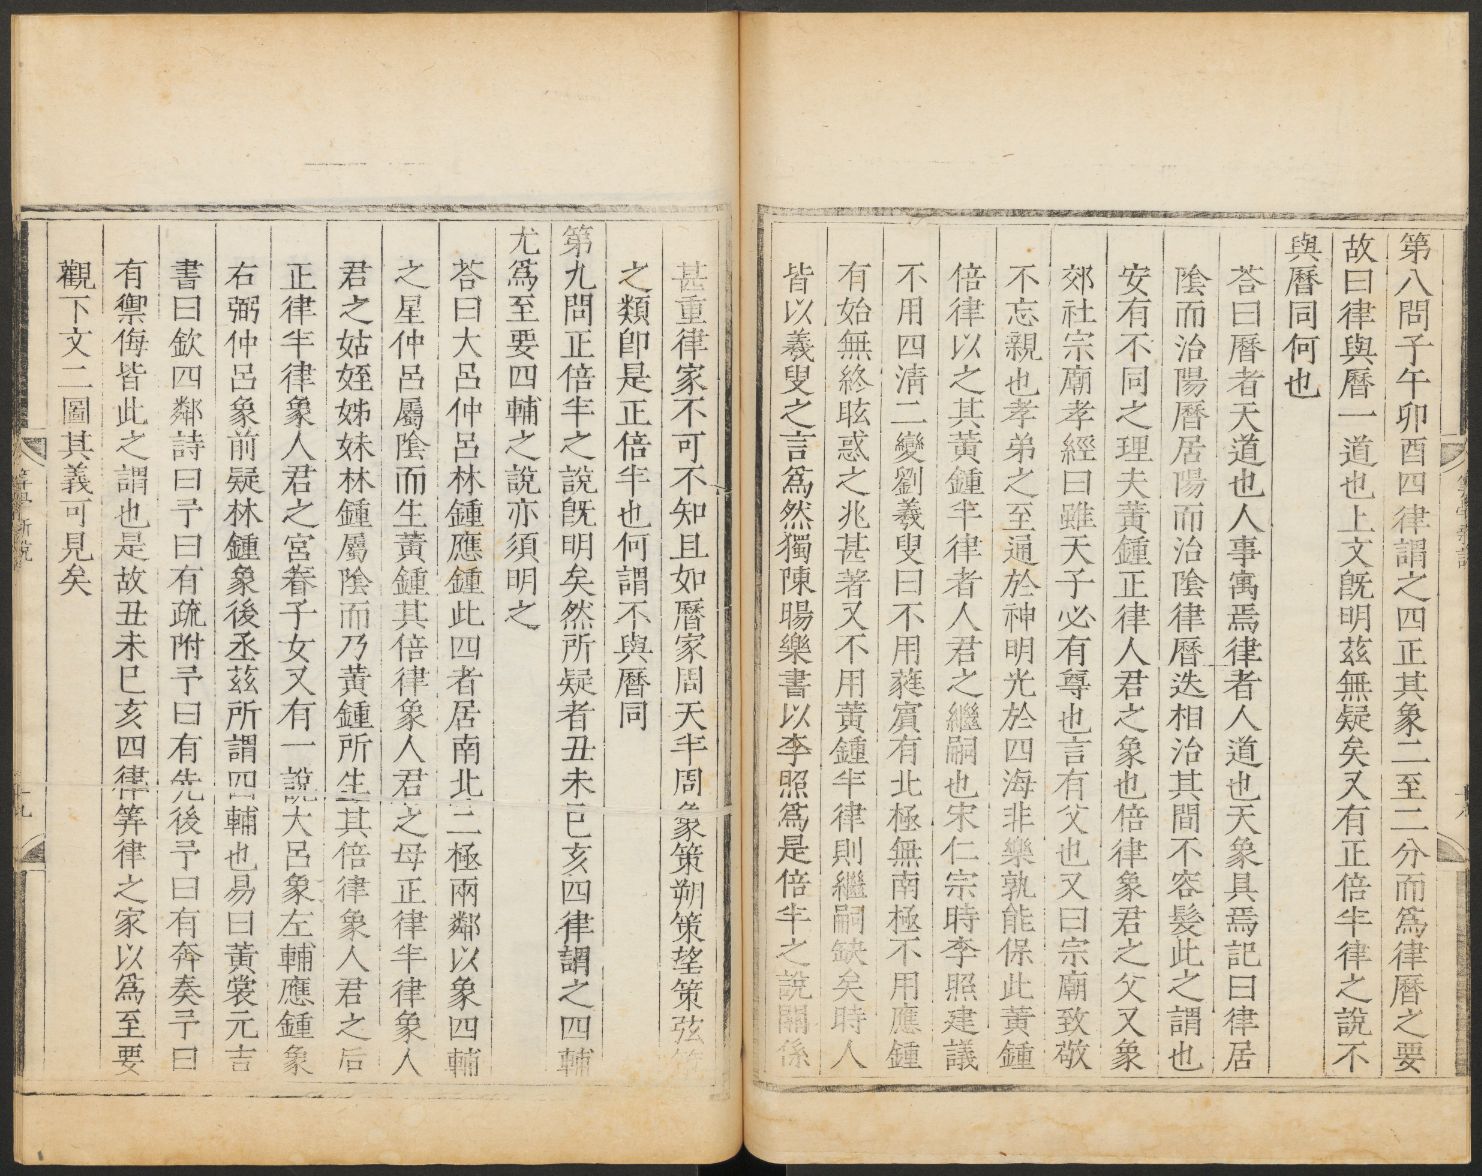 第八問子午卯酉四律謂之四正其象二至二分而爲律曆之要
故曰律與曆一道也上文旣明茲無疑矣又有正倍半律之說不
與曆同何也
荅曰曆者天道也人事寓焉律者人道也天象具焉記曰律居
陰而治陽曆居陽而治陰律曆迭相治其間不容髮此之謂也
安有不同之理夫黃鍾正律人君之象也倍律象君之父又象
郊社宗廟孝經曰雖天子必有尊也言有父也又曰宗廟致敬
不忘親也孝弟之至通於神明光於四海非樂孰能保此黃鍾
倍律以之其黃鍾半律者人君之繼嗣也宋仁宗時李照建議
不用四清二變劉羲叟曰不用蕤賓有北極無南極不用應鍾
有始無終眩惑之兆甚著又不用黃鍾半律則繼嗣缺矣時人
皆以羲叟之言爲然獨陳暘樂書以李照爲是倍半之說關係
甚重律家不可不知且如曆家周天半周象策朔策望策弦策
之類卽是正倍半也何謂不與曆同
第九問正倍半之說旣明矣然所疑者丑未巳亥四律謂之四輔
尤爲至要四輔之說亦須明之
荅曰大呂仲呂林鍾應鍾此四者居南北二極兩鄰以象四輔
之星仲呂屬陰而生黃鍾其倍律象人君之母正律半律象人
君之姑姪姊妹林鍾屬陰而乃黃鍾所生其倍律象人君之后
正律半律象人君之宮眷子女又有一說大呂象左輔應鍾象
右弼仲呂象前疑林鍾象後丞茲所謂四輔也易曰黃裳元吉
書曰欽四鄰詩曰予曰有疏附予曰有先後予曰有奔奏予曰
有禦侮皆此之謂也是故丑未巳亥四律筭律之家以爲至要
觀下文二圖其義可見矣